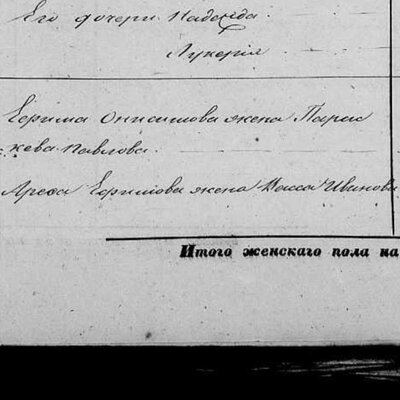 Его дочери Надежда.
Лукерія
Ефима Онисимова жена Парас
кева Павлова.
Ефимова жена Ивanова
Итого женскаго пола на